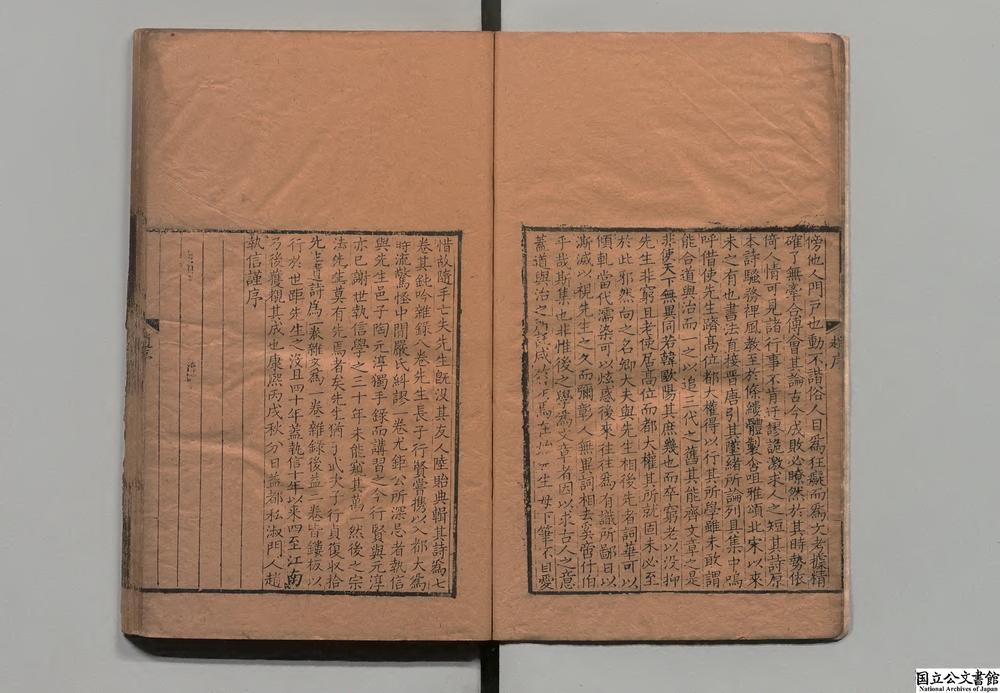 傍他人門戸也動不諧俗人目為狂癡而為文考據精
確了無牽合傅會其論古今成敗必瞭然於其時勢依
倚人情可見諸行事不肯迂謬詭激求人之短其詩原
本詩騷務裨風教至於條纖體製含咀雅頌北宋以來
未之有也書法直接晉唐引其墜緒所論列且集中嗚
呼借使先生躋高位都大權得以行其所學雖未敢謂
能合道與治而一之以追三代之舊其能齊文章之是
非使天下無異同若韓歐陽其庶幾也而卒窮老以沒抑
先生非窮且老使居高位而都大權其所就固未必至
於此邪然向之名卿大夫與先生相後先者詞華可以
傾軋當代濡染可以炫惑後來往往為有識所鄙日以
澌滅以視先生之久而彌彰人無異詞相去奚啻什伯
乎哉斯集也非惟後之學為文章者因以求古人之意
蓋道與治之 咸 焉 先生毋下筆不自愛
趙序
惜故隨手亡失先生旣沒其友人陸貽典輯其詩為七
卷其鈍吟雜錄八卷先生長子行賢嘗攜以入都大為
時流驚怪中間嚴氏糾謬一卷尤鉅公所深忌者執信
與先生邑子陶元淳獨手錄而講習之今行賢與元淳
亦已謝世執信學之三十年未能窺其萬一然後之宗
法先生莫有先焉者矣先生猶子武次子行貞復收拾
先生遺詩為一表雜文為一卷雜錄後益二卷皆鏤板以
行於世距先生之沒且四十年蓋執信十年以來四至江南
乃後獲觀其成也康熙丙戌秋分日益都私淑門人趙
執信謹序
国立公文書館
National Archives of Japan